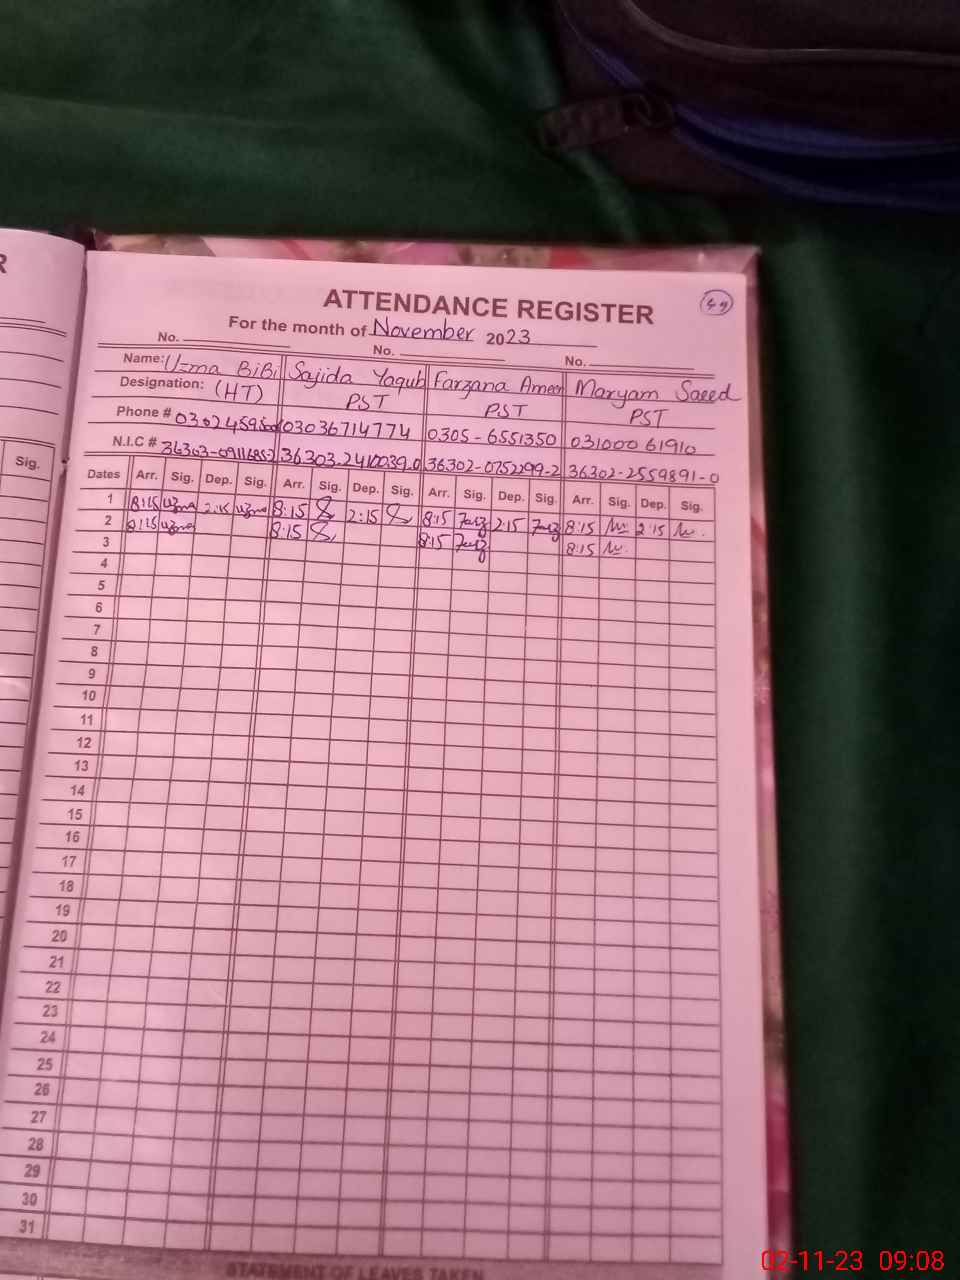 R
Sig.
49
ATTENDANCE REGISTER
For the month of November 2023
No. No. No.
Name: Uzma BiBi Sajida Yaqub Farzana Ameer Maryam Saeed
Designation: (HT) PST PST PST
Phone # 03036714774 0305-6551350 03100061910
N.I.C # 36302-0752299-2 36302-2559891-0
Dates Arr. Sig. Dep. Sig. Arr. Sig. Dep. Sig. Arr. Sig. Dep. Sig. Arr. Sig. Dep. Sig.
1 8:15 Uzma 2:15 Uzma 8:15 2:15 8:15 Farz 2:15 Farz 8:15 2:15
2 8:15 Uzma 8:15 8:15 Farz 8:15
3
4
5
6
7
8
9
10
11
12
13
14
15
16
17
18
19
20
21
22
23
24
25
26
27
28
29
30
31
STATEMENT OF LEAVES TAKEN
02-11-23 09:08